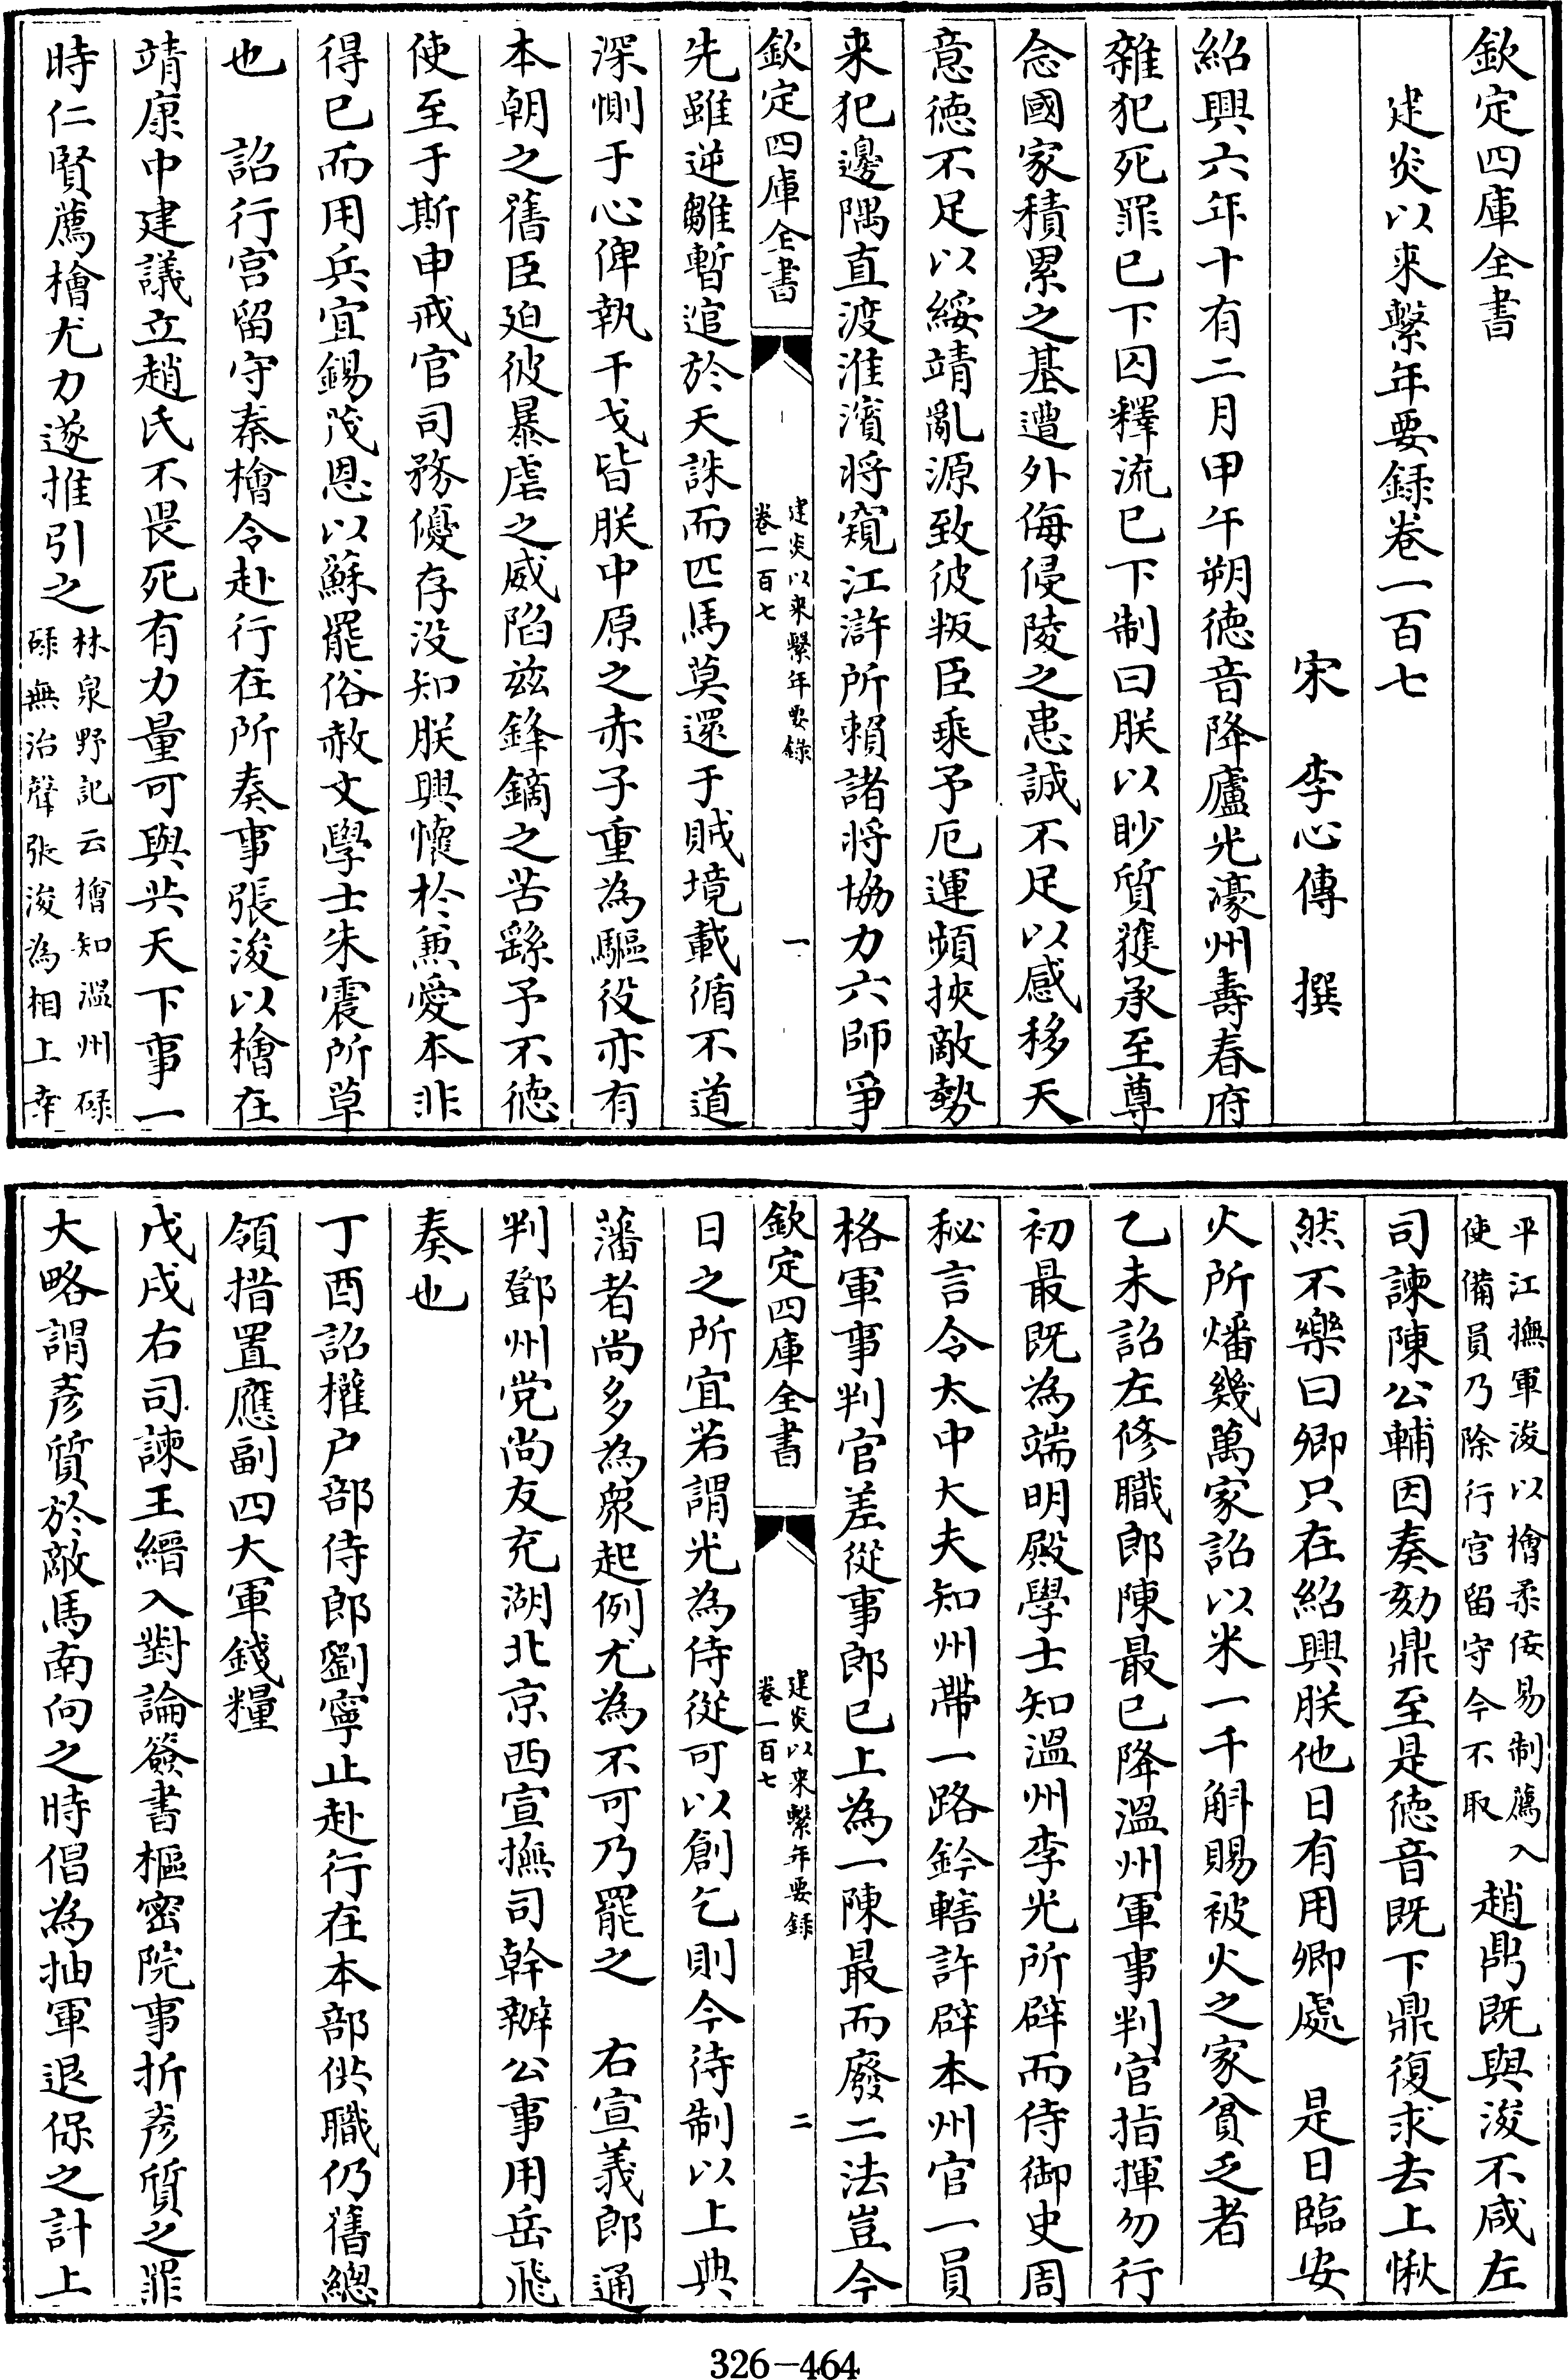 欽定四庫全書
建炎以來繫年要録卷一百七
宋 李心傳 撰
紹興六年十有二月甲午朔德音降廬光濠州壽春府
雜犯死罪已下囚釋流已下制曰朕以眇質獲承至尊
念國家積累之基遭外侮侵陵之患誠不足以感移天
意德不足以綏靖亂源致彼叛臣乘予厄運頻挾敵勢
来犯邊隅直渡淮濱將窺江滸所賴諸將協力六師爭
欽定四庫全書
建炎以來繫年要錄
卷一百七
一
先雖逆雛暫逭於天誅而匹馬莫還于賊境載循不道
深惻于心俾執干戈皆朕中原之赤子重為驅役亦有
本朝之舊臣廹彼暴虐之威陷兹鋒鏑之苦繇予不德
使至于斯申戒官司務優存没知朕興懐於兼愛本非
得已而用兵宜錫茂恩以蘇罷俗赦文學士朱震所草
也 詔行宫留守秦檜令赴行在所奏事張浚以檜在
靖康中建議立趙氏不畏死有力量可與共天下事一
時仁賢薦檜尤力遂推引之
林泉野記云檜知溫州碌
碌無治聲張浚為相上幸
平江撫軍浚以檜柔佞易制薦入
使備員乃除行宫留守今不取
趙鼎既與浚不咸左
司諫陳公輔因奏劾鼎至是德音既下鼎復求去上愀
然不樂曰卿只在紹興朕他日有用卿處 是日臨安
火所燔幾萬家詔以米一千斛賜被火之家貧乏者
乙未詔左修職郎陳最已降溫州軍事判官指揮勿行
初最既為端明殿學士知溫州李光所辟而侍御史周
秘言令太中大夫知州帶一路鈐轄許辟本州官一員
格軍事判官差從事郎已上為一陳最而廢二法豈今
欽定四庫全書
建炎以來繫年要録
卷一百七
二
日之所宜若謂光為侍從可以創乞則今待制以上典
藩者尚多為衆起例尤為不可乃罷之 右宣義郎通
判鄧州党尚友充湖北京西宣撫司幹辦公事用岳飛
奏也
丁酉詔權户部侍郎劉寧止赴行在本部供職仍舊總
領措置應副四大軍錢糧
戊戌右司諫王縉入對論簽書樞密院事折彥質之罪
大略謂彥質於敵馬南向之時倡為抽軍退保之計上
326-464